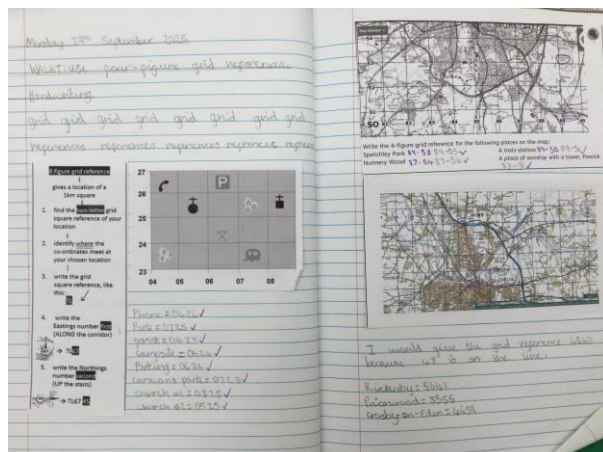 Monday 29th September 2025
WALT: use four-figure grid references.
Handwriting
grid grid grid grid grid grid grid
references references references references
4 figure grid reference
gives a location of a
1km square
1. find the two-letter grid
square reference of your
location
2. identify where the
co-ordinates meet at
your chosen location
3. write the grid
square reference, like
this:
TL
4. write the
Eastings number first
(ALONG the corridor)
→ TL67
5. write the Northings
number second
(UP the stairs)
→ TL67 45
27
26
25
24
23
04 05 06 07 08
P
Phone = 0426
Park = 0725
pond = 0423
Campsite = 0624
Parking = 0626
caravan park = 0723
church #1 = 0825
church #2 = 0525
SO
Write the 4-figure grid reference for the following places on the map:
Spetchley Park 89-53
Nunnery Wood 87-54 87-54
A train station
A place of worship with a tower, Powick
I would give the grid reference 4860
because 48 is on the line.
Rickerby = 5041
Priorwood = 3555
Crosby-on-Eden = 4659